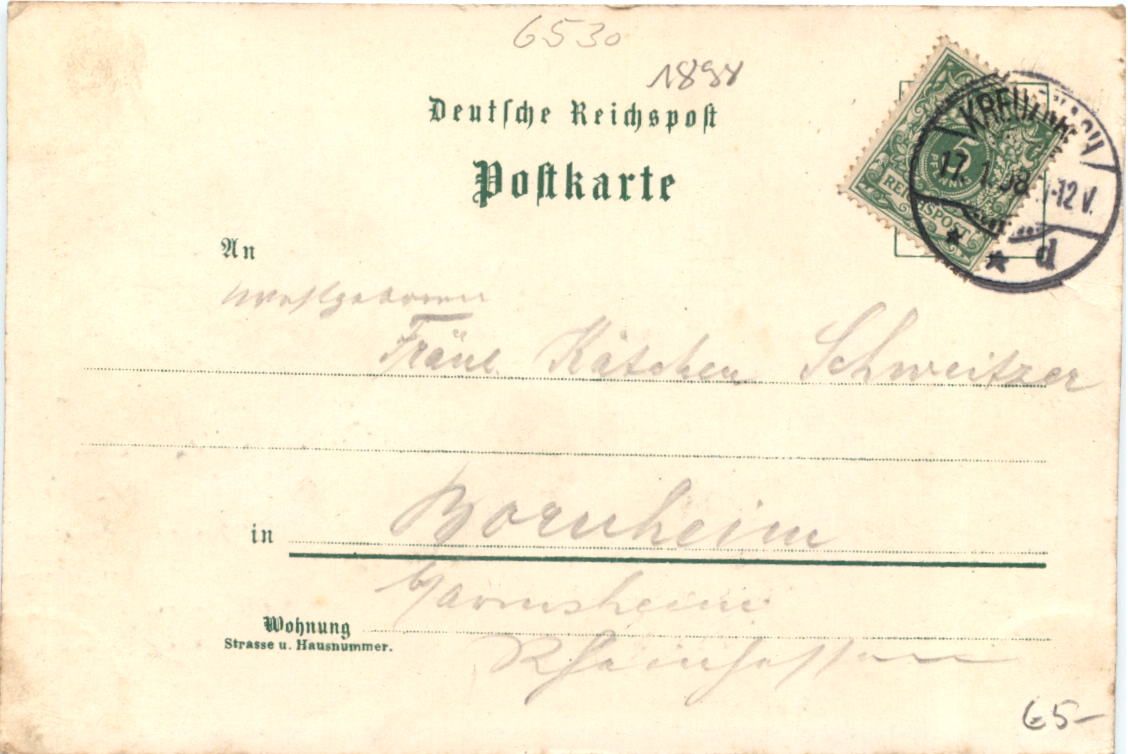 6530
1898
Deutsche Reichspost
Postkarte
KREUZNACH
17.1.98. 11-12 V.
d
5
PFENNIG
REICHSPOST
An
Wohlgeboren
Fräul. Kätchen Schweitzer
in Bornheim
Wohnung
Strasse u. Hausnummer.
Rheinhessen
65-